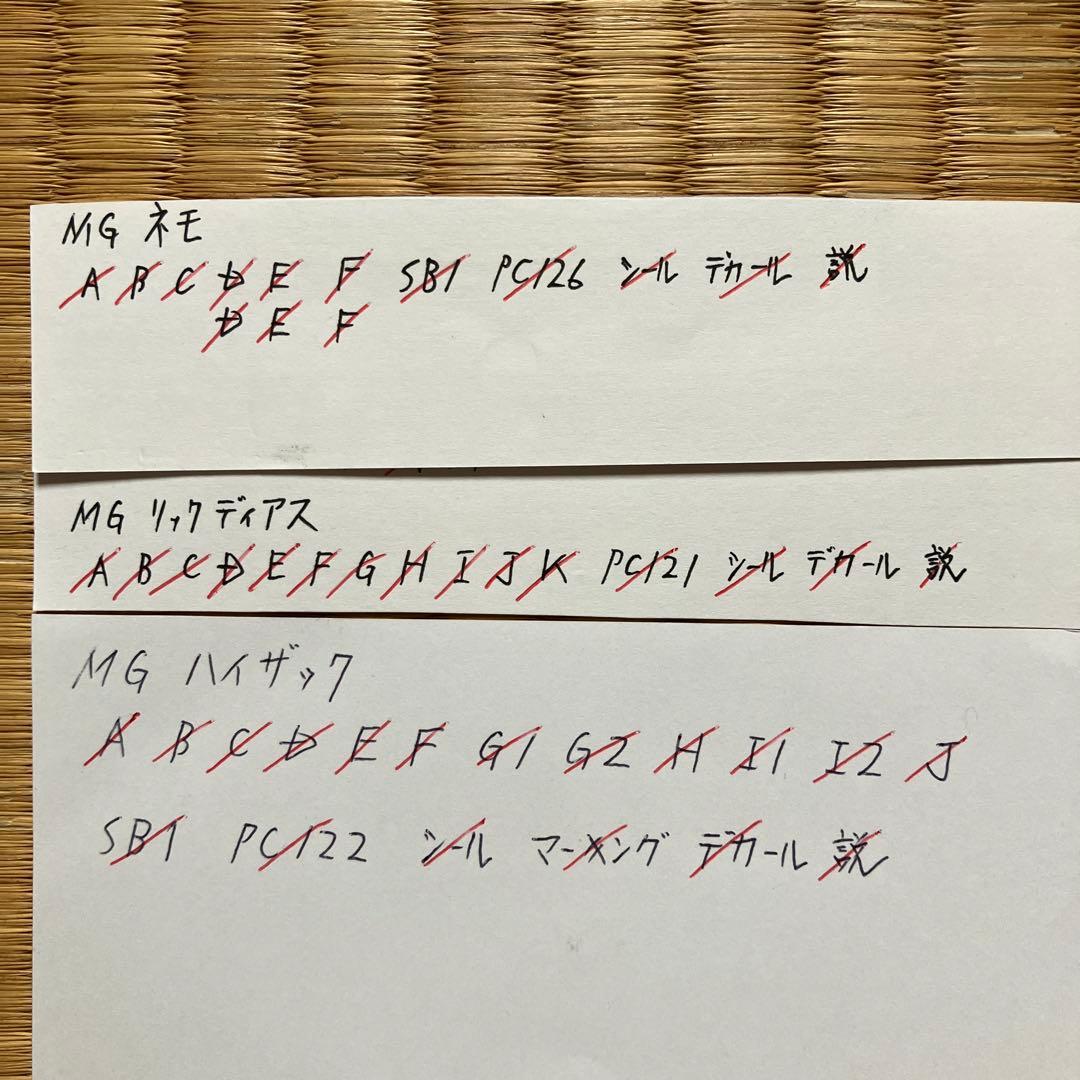 MG ネモ
A B C D E F SB1 PC126 シール デカール 説
D E F
MG リックディアス
A B C D E F G H I J K PC121 シール デカール 説
MG ハイザック
A B C D E F G1 G2 H I1 I2 J
SB1 PC122 シール マーキング デカール 説